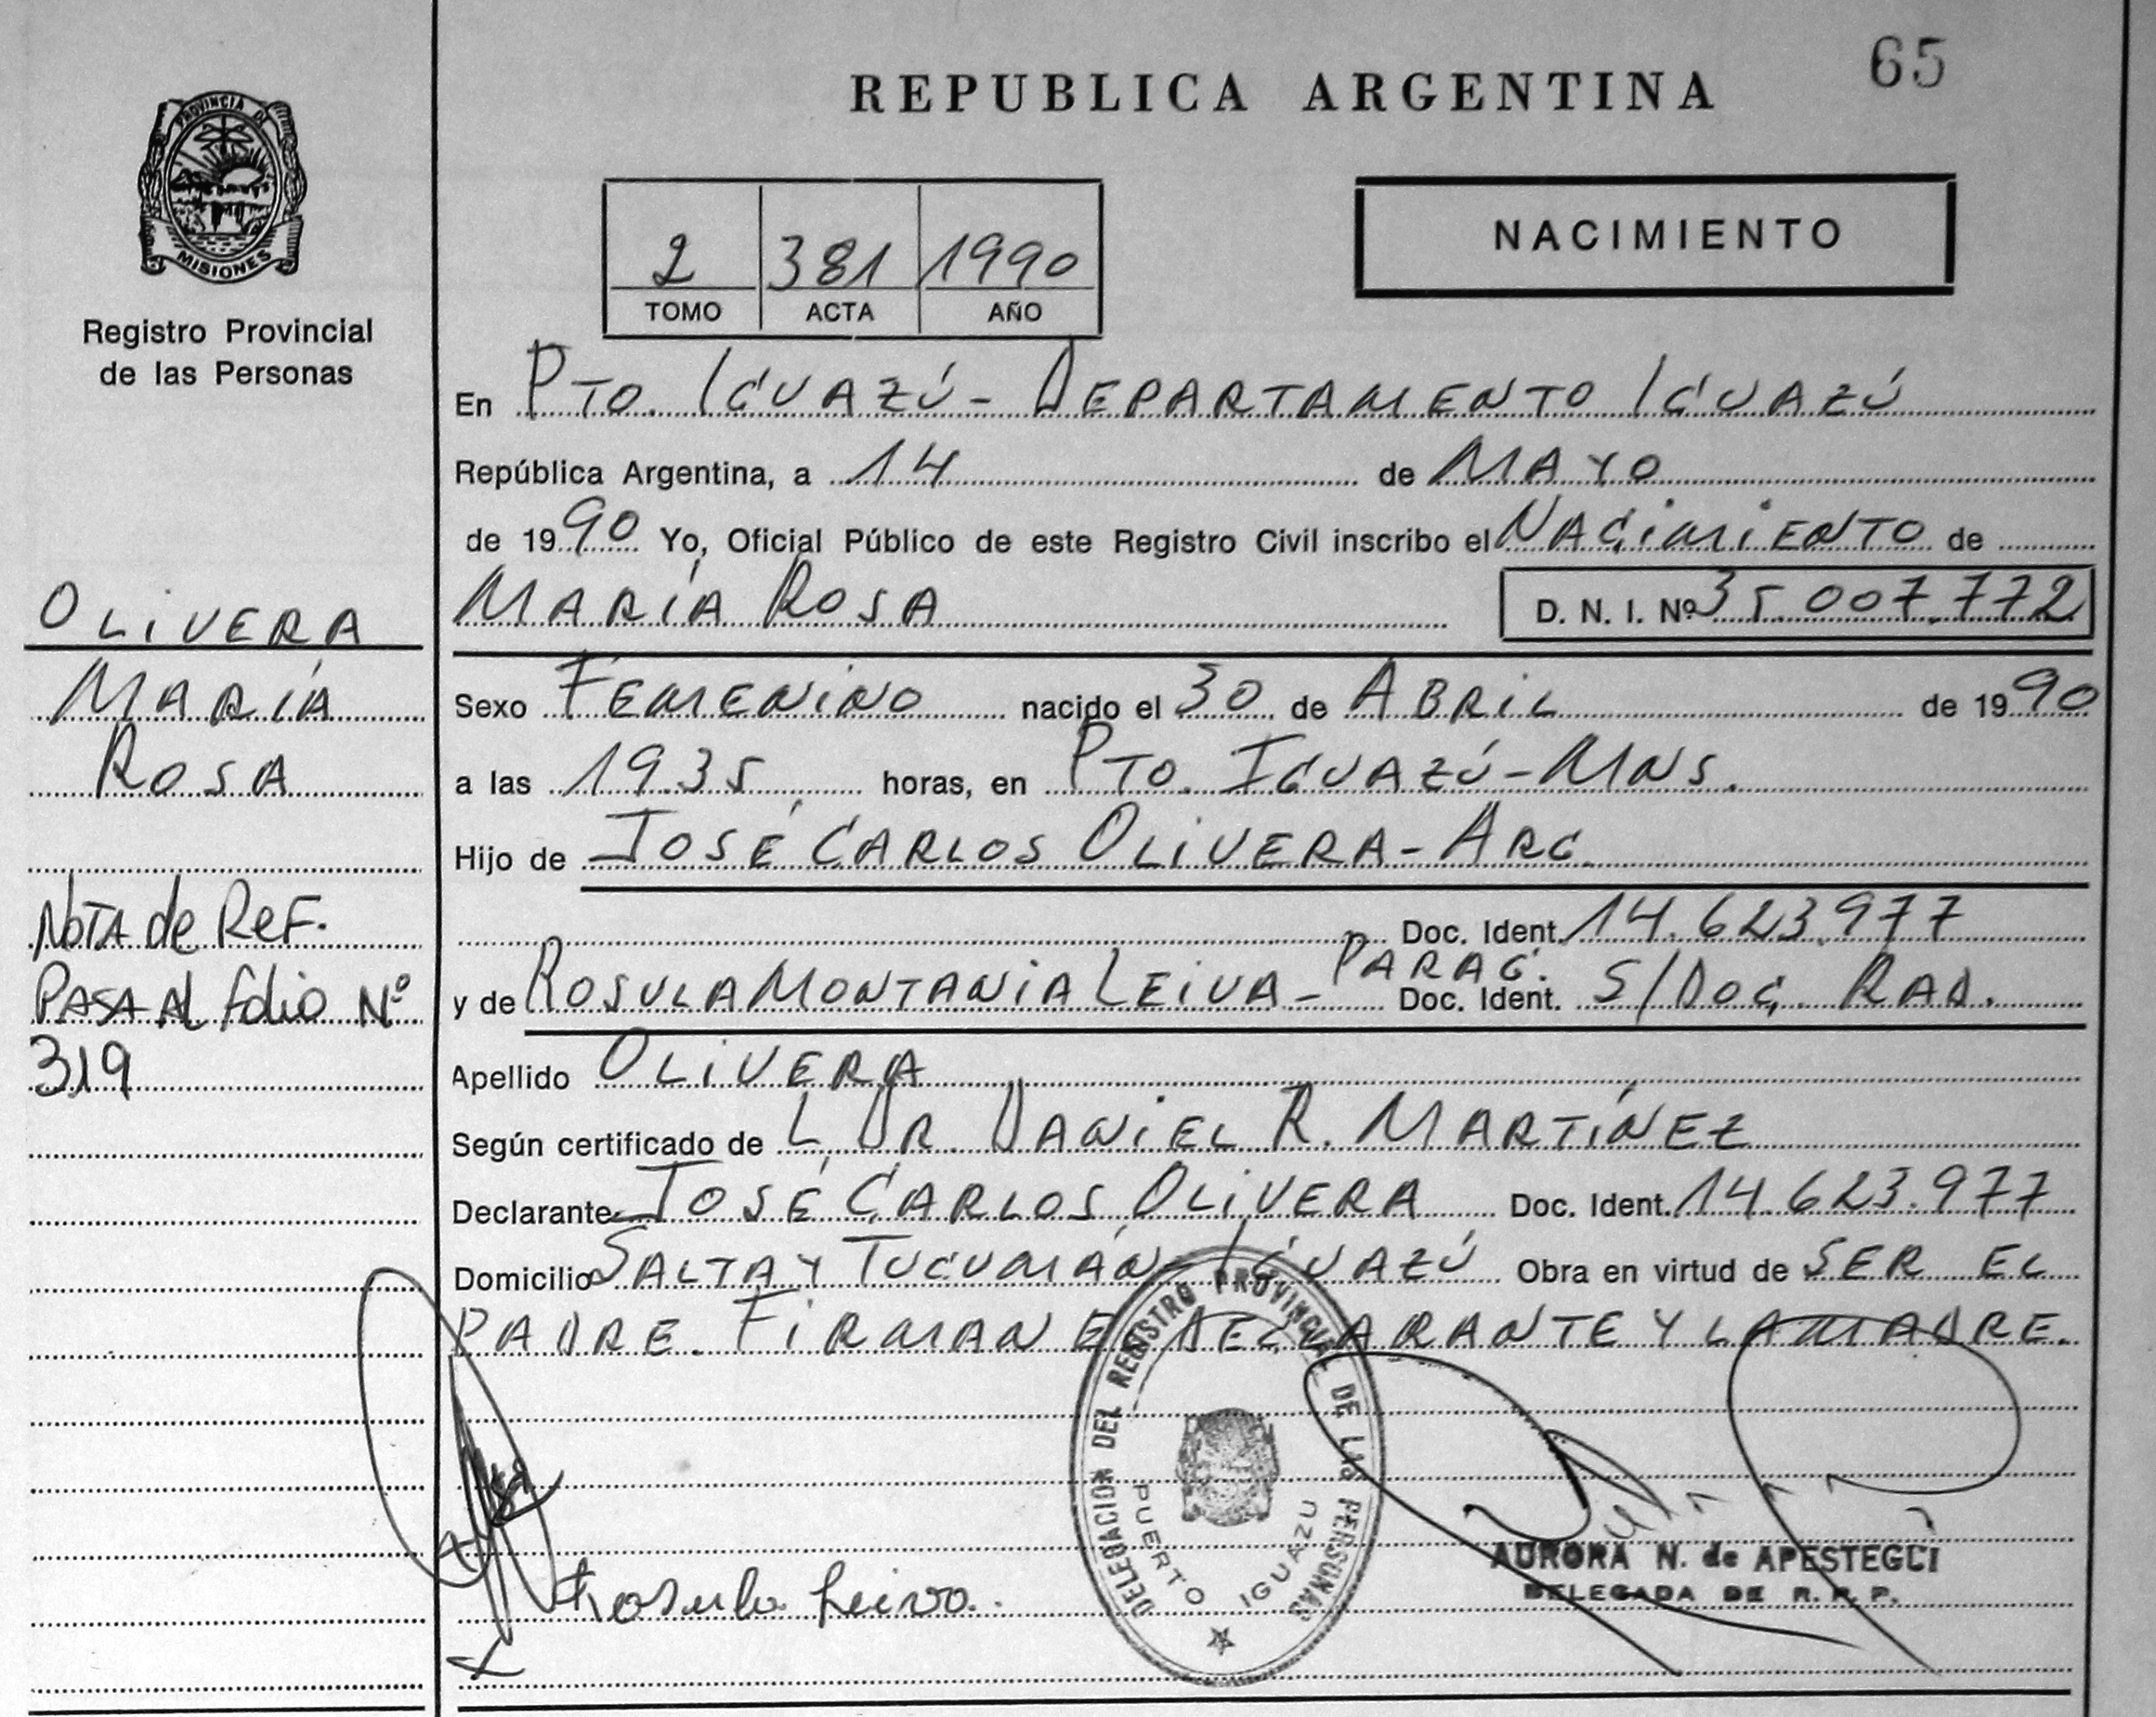 65
REPUBLICA ARGENTINA
PROVINCIA D
MISIONES
Registro Provincial
de las Personas
2 381 1990
TOMO ACTA AÑO
NACIMIENTO
En PTO. IGUAZÚ - DEPARTAMENTO IGUAZÚ
República Argentina, a 14 de MAYO
de 1990 Yo, Oficial Público de este Registro Civil inscribo el NACIMIENTO de
MARÍA ROSA D. N. I. Nº 35.007.772
OLIVERA
MARÍA
ROSA
Sexo FEMENINO nacido el 30 de ABRIL de 1990
a las 19.35 horas, en PTO. IGUAZÚ - MNS.
Hijo de JOSÉ CARLOS OLIVERA - ARG.
Doc. Ident. 14.623.977
y de ROSULA MONTANIA LEIVA - PARAG. Doc. Ident. S/DOC. RAD.
NOTA de REF.
PASA AL folio Nº
319
Apellido OLIVERA
Según certificado de L. DR. DANIEL R. MARTÍNEZ
Declarante JOSÉ CARLOS OLIVERA Doc. Ident. 14.623.977
Domicilio SALTA Y TUCUMÁN - IGUAZÚ Obra en virtud de SER EL
PADRE. FIRMAN EL DECLARANTE Y LA MADRE.
DELEGACION DEL REGISTRO PROVINCIAL DE LAS PERSONAS
PUERTO IGUAZU
Rosula Leiva.
AURORA N. de APESTEGUI
DELEGADA DE R. P. P.